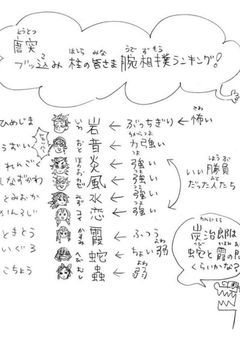 唐突
ブッ込み 柱の皆さま 腕相撲ランキング!
ひめじま 岩 ← ぶっちぎり ← 怖い
うずい 音 ← 力強い
れんご 炎 ← 強い
しなずがわ 風 ← 強い
とみおか 水 ← 強い
かんろじ 恋 ← 強い
ときとう 霞 ← ふつう
いぐろ 蛇 ← ちょい弱
こちょう 蟲 ← 弱
いい勝負
だった人たち
炭治郎は
蛇と霞の
くらいかな?